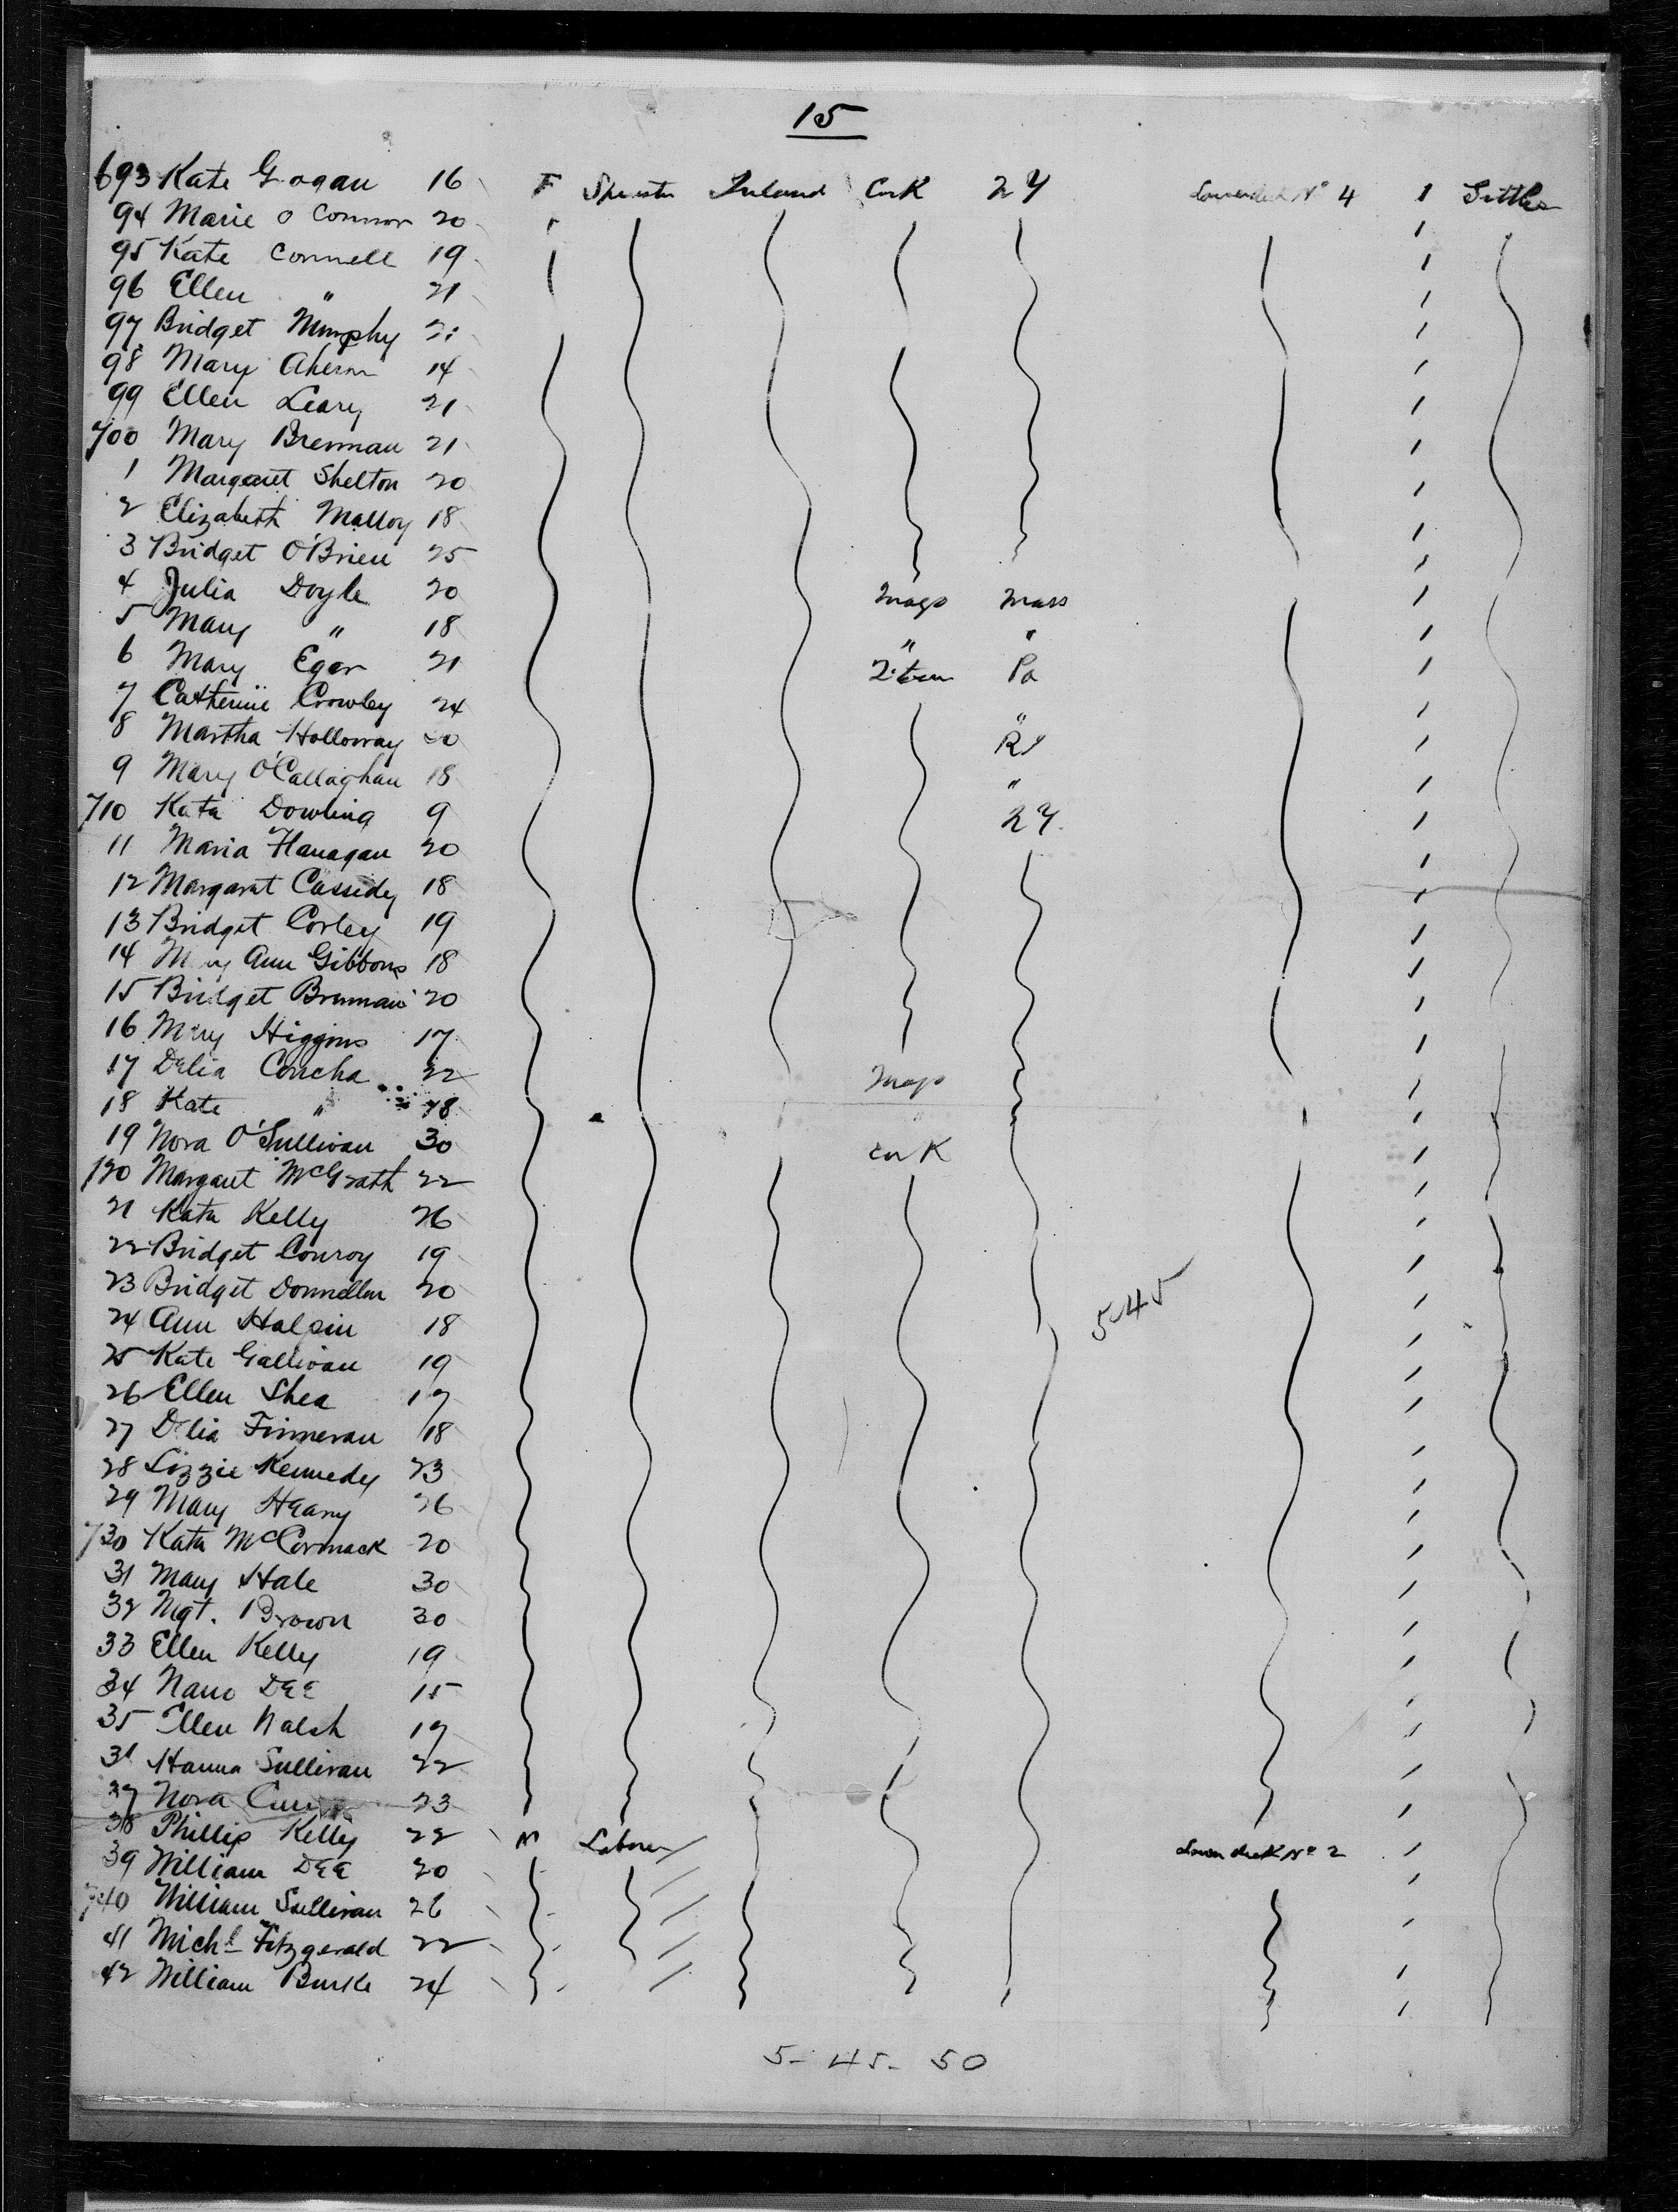 15
693 Kate Gogan 16 F Spinster Ireland Cork NY Lowerdeck No 4 1 Settler
94 Marie O Connor 20
95 Kate Connell 19
96 Ellen " 21
97 Bridget Murphy
98 Mary Ahern 14
99 Ellen Leary 21
700 Mary Brennan 21
1 Margaret Shelton 20
2 Elizabeth Malloy 18
3 Bridget O'Brien 25
4 Julia Doyle 20 Mayo Mass
5 Mary " 18 " "
6 Mary Egan 21 Pa
7 Catherine Crowley 24 "
8 Martha Holloway 20 RI
9 Mary O'Callaghan 18 "
710 Kate Dowling 9 NY.
11 Maria Flanagan 20
12 Margaret Cassidy 18
13 Bridget Corley 19
14 Mary Ann Gibbons 18
15 Bridget Brennan 20
16 Mary Higgins 17
17 Delia Concha 22 Mayo
18 Kate " 18
19 Nora O'Sullivan 30 Cork
720 Margaret McGrath 22
21 Kate Kelly 26
22 Bridget Conroy 19
23 Bridget Donnellan 20
545
24 Ann Halpin 18
25 Kate Gallivan 19
26 Ellen Shea 17
27 Delia Finneran 18
28 Lizzie Kennedy 23
29 Mary Heany 26
730 Kate McCormack 20
31 Mary Hale 30
32 Mgt. Brown 30
33 Ellen Kelly 19
34 Nano Dee 15
35 Ellen Walsh 17
36 Hanna Sullivan 22
37 Nora 23
38 Phillip Kelly 22 M Laborer Lower deck No 2
39 William Dee 20
740 William Sullivan 26
41 Michl Fitzgerald 22
42 William Burke 24
5-45-50